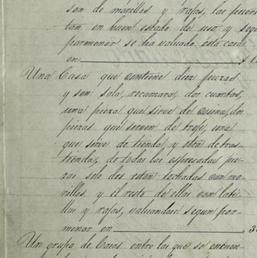 san de morillos y rajas, las puertas
tan en buen estado de uso y segun
pormenor se ha valuado esta casa
en
Una Casa que contiene diez piezas
y son sala, recamara, dos cuartos,
una pieza que sirve de cocina, dos
piezas que sirven de troje, una
que sirve de tienda, y otra de tras
tienda, de todas las espresadas pie
zas solo dos estan techadas con mo
rillos, y el resto de ellas con lati
lla y rajas, valuandose segun por
menor en
Un grupo de Casas entre las que se encuen